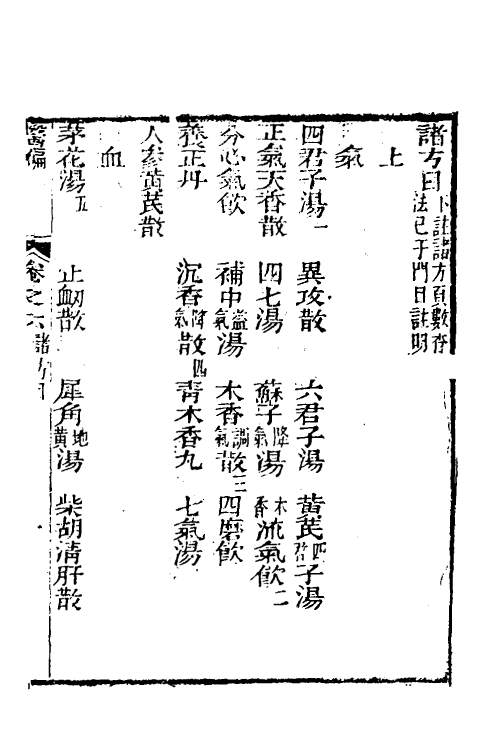 諸方目 下註諸方頁數存法已于門目註明
上
氣
四君子湯一 異攻散 六君子湯 黃芪四君子湯
正氣天香散 四七湯 蘇子降氣湯 木香流氣飲二
分心氣飲 補中益氣湯 木香調氣散三 四磨飲
養正丹 沉香降氣散四 青木香丸 七氣湯
人參黃芪散
血
茅花湯五 止衂散 犀角地黃湯 柴胡清肝散
醫偏 卷之六 諸方目 一